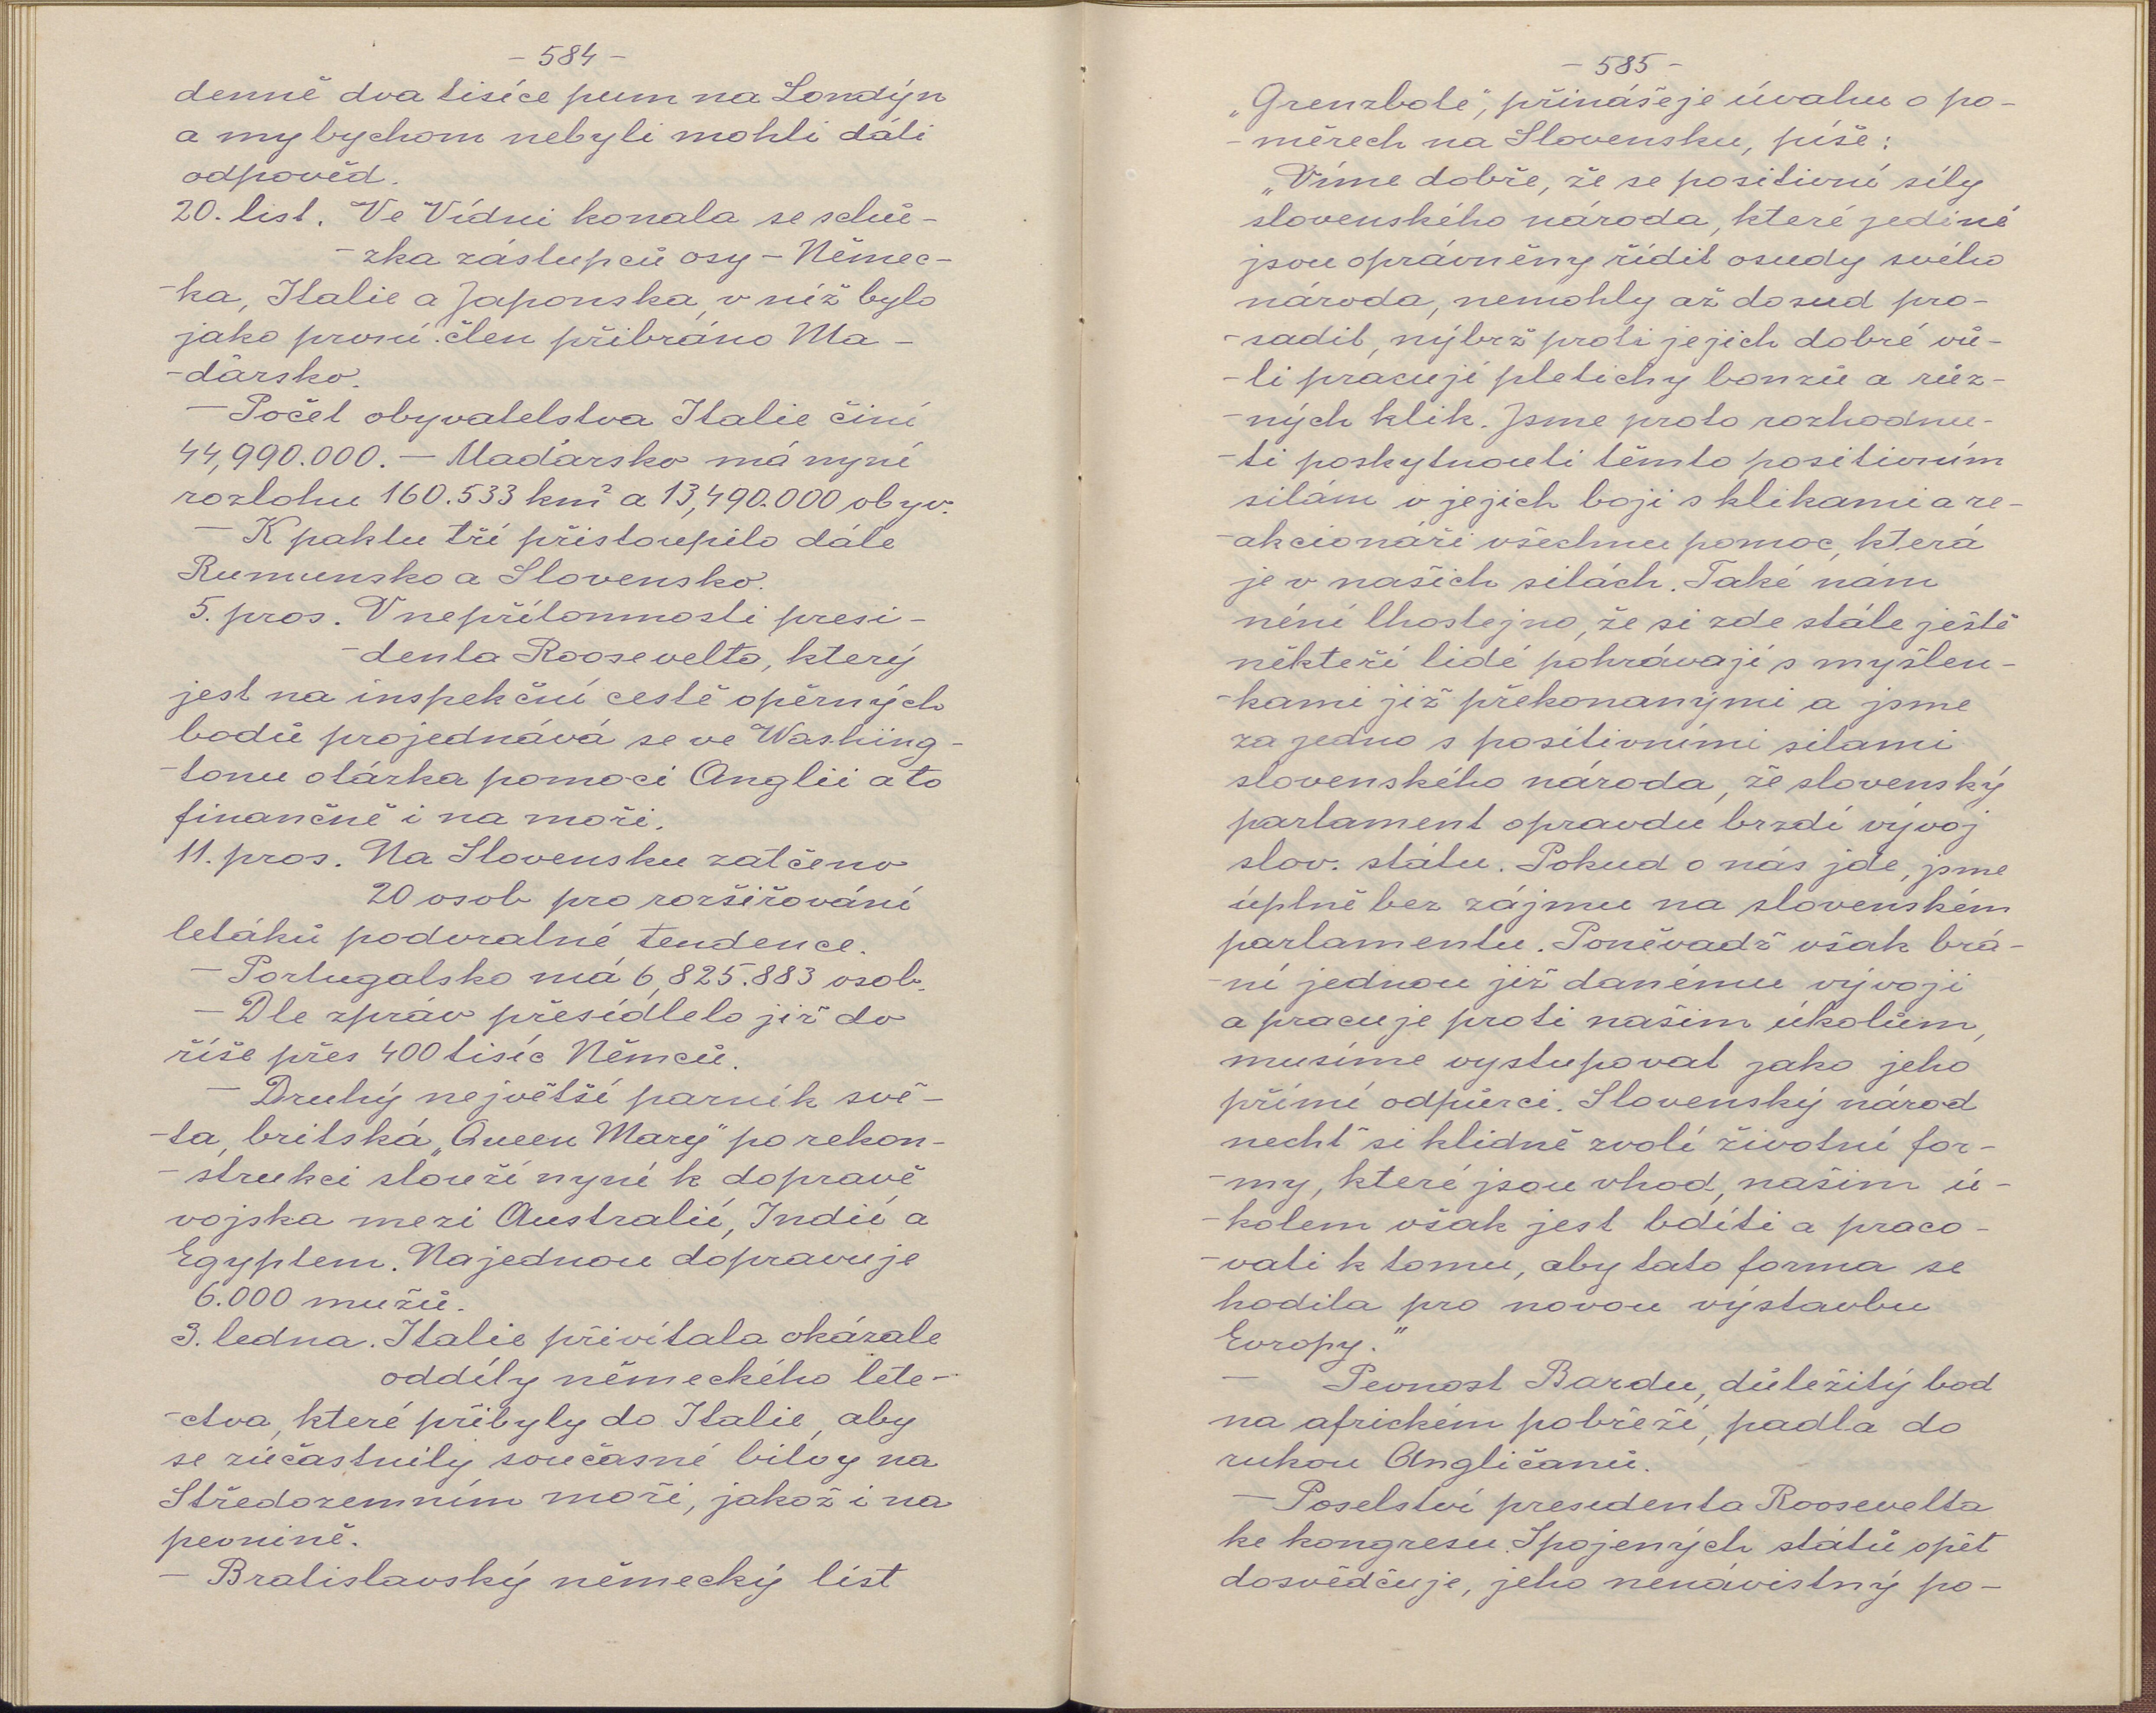 - 584 -
denně dva tisíce pum na Londýn
a my bychom nebyli mohli dáti
odpověd.
20. list. Ve Vídni konala se schů-
-zka zástupců osy - Němec-
-ka, Italie a Japonska, v níž bylo
jako první člen přibráno Ma-
-ďarsko.
- Počet obyvatelstva Italie činí
44,990.000. - Maďarsko má nyní
rozlohu 160.533 km² a 13,490.000 obyv.
- K paktu tří přistoupilo dále
Rumunsko a Slovensko.
5. pros. V nepřítomnosti presi-
-denta Roosevelta, který
jest na inspekční cestě opěrných
bodů projednává se ve Washing-
-tonu otázka pomoci Anglii a to
finančně i na moři.
11. pros. Na Slovensku zatčeno
20 osob pro rozšiřování
letáků podvratné tendence.
- Portugalsko má 6,825.883 osob.
- Dle zpráv přesídlelo již do
říše přes 400 tisíc Němců.
- Druhý největší parník svě-
-ta, britská „Queen Mary" po rekon-
-strukci slouží nyní k dopravě
vojska mezi Australií, Indií a
Egyptem. Najednou dopravuje
6.000 mužů.
3. ledna. Italie přivítala okázale
oddíly německého lete-
-ctva, které přibyly do Italie, aby
se zúčastnily současné bitvy na
Středozemním moři, jakož i na
pevnině.
- Bratislavský německý list
- 585 -
„Grenzbote", přinášeje úvahu o po-
-měrech na Slovensku, píše:
„Víme dobře, že se positivní síly
slovenského národa, které jediné
jsou oprávněny řídit osudy svého
národa, nemohly až dosud pro-
-sadit, nýbrž proti jejich dobré vů-
-li pracují pletichy bonzů a růz-
-ných klik. Jsme proto rozhodnu-
-ti poskytnouti těmto positivním
silám v jejich boji s klikami a re-
-akcionáři všechnu pomoc, která
je v našich silách. Také nám
néní lhostejno, že si zde stále ještě
někteří lidé pohrávají s myšlen-
-kami již překonanými a jsme
za jedno s positivními silami
slovenského národa, že slovenský
parlament opravdu brzdí vývoj
slov. státu. Pokud o nás jde, jsme
úplně bez zájmu na slovenském
parlamentu. Poněvadž však brá-
-ní jednou již danému vývoji
a pracuje proti našim úkolům,
musíme vystupovat jako jeho
přímí odpůrci. Slovenský národ
nechť si klidně zvolí životní for-
-my, které jsou vhod, našim ú-
-kolem však jest bdíti a praco-
-vati k tomu, aby tato forma se
hodila pro novou výstavbu
Evropy."
- Pevnost Bardu, důležitý bod
na africkém pobřeží, padla do
rukou Angličanů.
- Poselství presidenta Roosevelta
ke kongresu Spojených států opět
dosvědčuje, jeho nenávistný po-